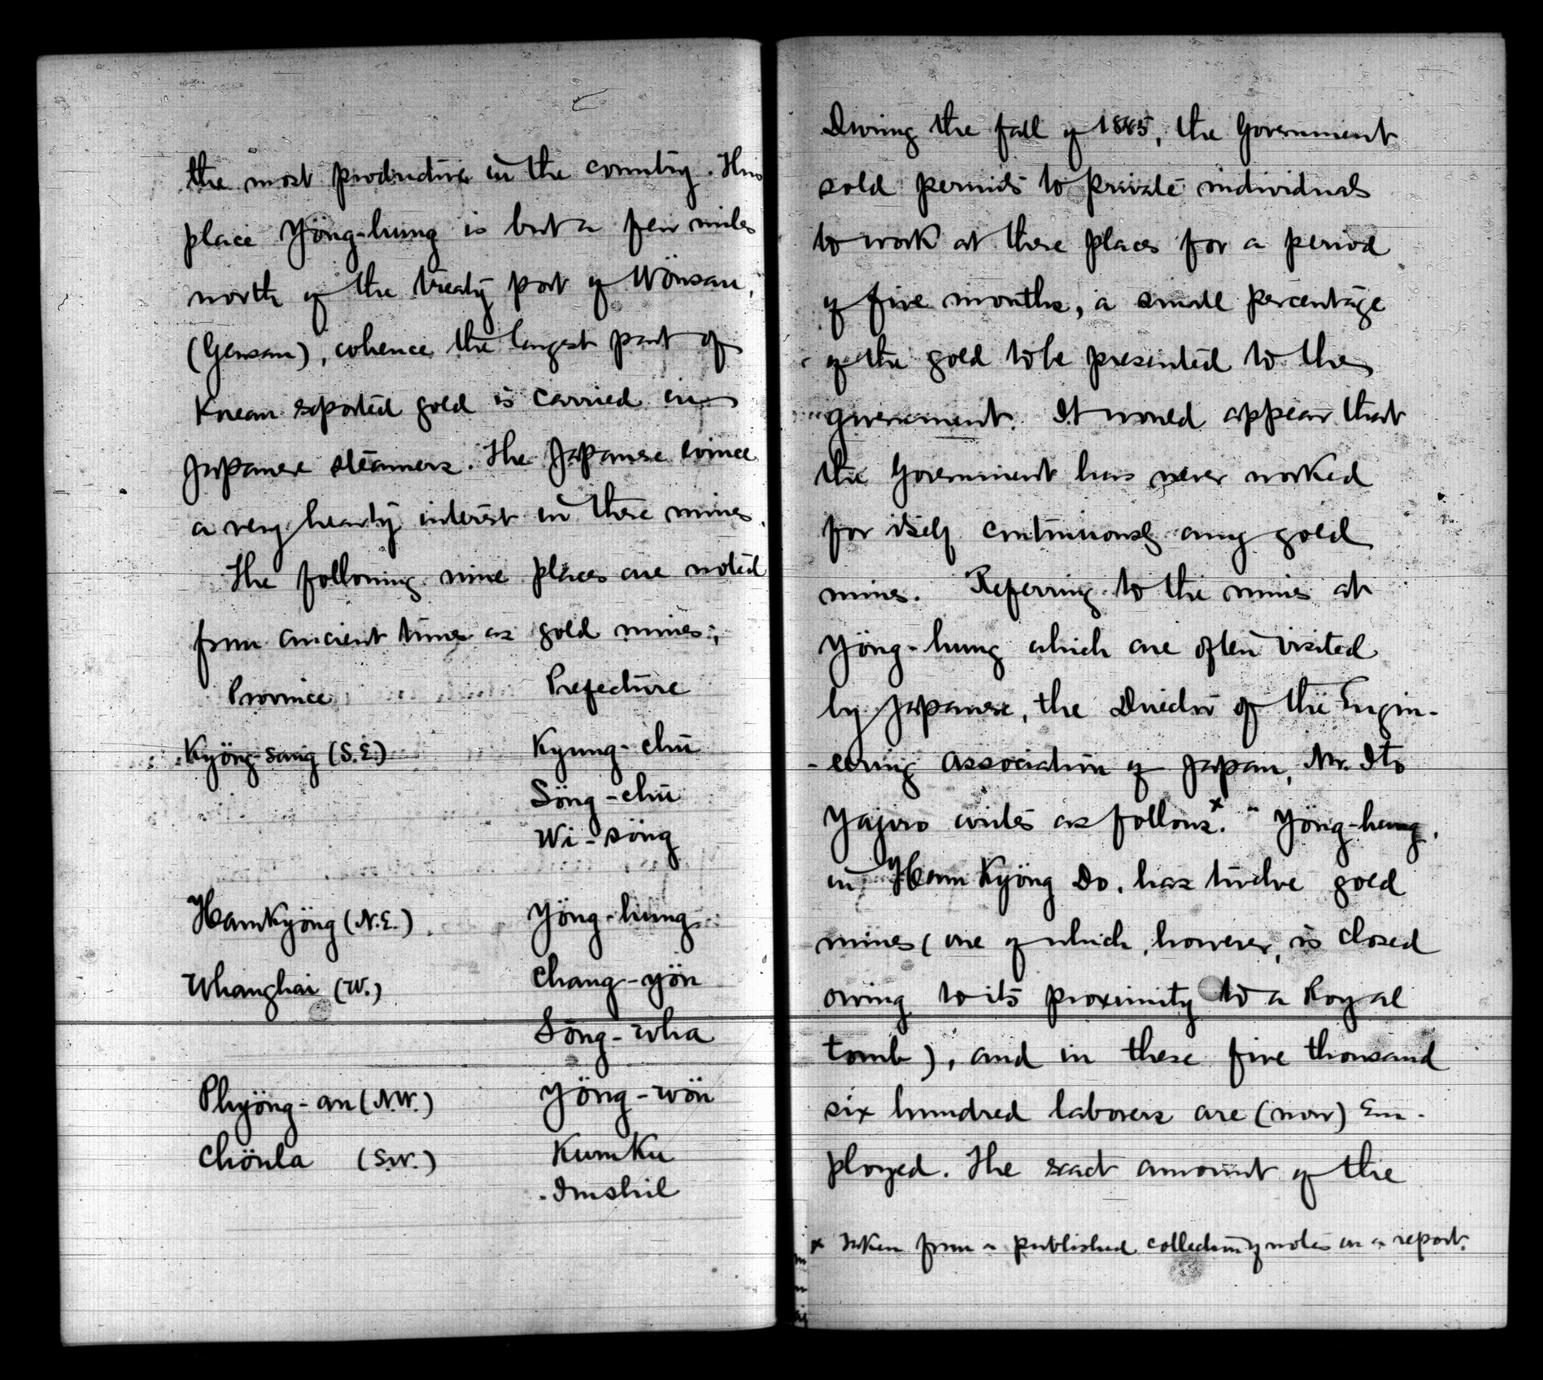 the most productive in the country. This
place Yöng-hung is but a few miles
north of the treaty port of Wönsan,
(Gensan), whence the largest part of
Korean exported gold is carried in
Japanese steamers. The Japanese evince
a very hearty interest in these mines.
The following nine places are noted
from ancient times as gold mines:
Province Prefecture
Kyöng-sang (S.E.) Kyung-chu
Söng-chu
Wi-söng
Hamkyöng (N.E.) Yöng-hung
Whanghai (W.) Chang-yön
Song-wha
Phyöng-an (N.W.) Yöng-wön
Chönla (S.W.) Kumku
Imshil
During the fall of 1885, the Government
sold permits to private individuals
to work at these places for a period
of five months, a small percentage
of the gold to be presented to the
government. It would appear that
the Government has never worked
for itself continuously any gold
mines. Referring to the mines at
Yöng-hung which are often visited
by Japanese, the Director of the Engin-
-eering Association of Japan, Mr. Ito
Yajiro writes as follows.x "Yöng-hung,
in Ham Kyöng Do, has twelve gold
mines (one of which, however, is closed
owing to its proximity to a Royal
tomb), and in these five thousand
six hundred laborers are (now) em-
ployed. The exact amount of the
x Taken from a published collection of notes in a report.